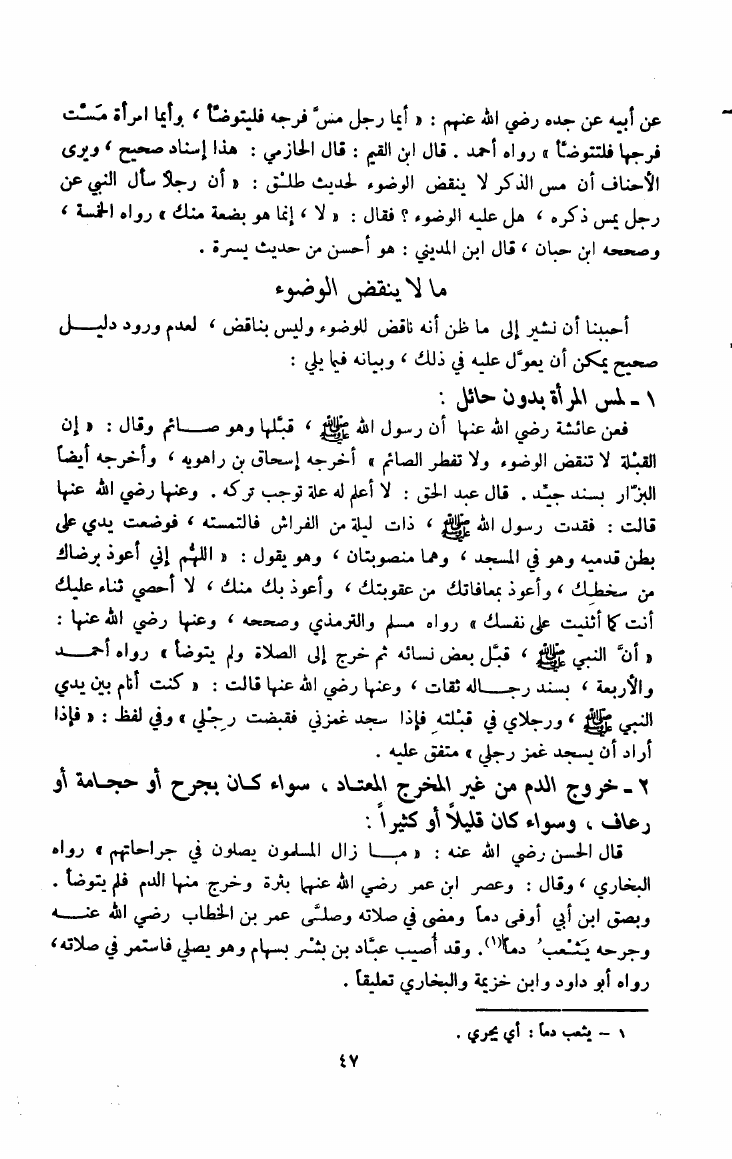 عن أبيه عن جده رضي الله عنهم : « أيما رجل مسَّ فرجه فليتوضأ ، وأيما امرأة مَسَّت
فرجها فلتتوضأ » رواه أحمد . قال ابن القيم : قال الحازمي : هذا إسناد صحيح ، ويرى
الأحناف أن مس الذكر لا ينقض الوضوء لحديث طلـْق : « أن رجلاً سأل النبي عن
رجل يمس ذكره ، هل عليه الوضوء ؟ فقال : « لا ، إنما هو بضعة منك » رواه الخمسة ،
وصححه ابن حبان ، قال ابن المديني : هو أحسن من حديث بسرة .
ما لا ينقض الوضوء
أحببنا أن نشير إلى ما ظن أنه ناقض للوضوء وليس بناقض ، لعدم ورود دليل
صحيح يمكن أن يعوَّل عليه في ذلك ، وبيانه فيما يلي :
١ - لمس المرأة بدون حائل :
فعن عائشة رضي الله عنها أن رسول الله ﷺ ، قبّلها وهو صائم وقال : « إن
القبْلة لا تنقض الوضوء ولا تفطر الصائم » أخرجه إسحاق بن راهويه ، وأخرجه أيضاً
البزّار بسند جيِّد . قال عبد الحق : لا أعلم له علة توجب تركه . وعنها رضي الله عنها
قالت : فقدت رسول الله ﷺ ، ذات ليلة من الفراش فالتمسته ، فوضعت يدي على
بطن قدميه وهو في المسجد ، وهما منصوبتان ، وهو يقول : « اللهُم إني أعوذ برضاك
من سخطك ، وأعوذ بمعافاتك من عقوبتك ، وأعوذ بك منك ، لا أحصي ثناء عليك
أنت كما أثنيت على نفسك » رواه مسلم والترمذي وصححه ، وعنها رضي الله عنها :
« أنَّ النبي ﷺ ، قبَّل بعض نسائه ثم خرج إلى الصلاة ولم يتوضأ » رواه أحمد
والأربعة ، بسند رجاله ثقات ، وعنها رضي الله عنها قالت : « كنت أنام بين يدي
النبي ﷺ ، ورجلاي في قبْلته فإذا سجد غمزني فقبضت رِجْلي » وفي لفظ : « فإذا
أراد أن يسجد غمز رجلي » متفق عليه .
٢ - خروج الدم من غير المخرج المعتاد ، سواء كان بجرح أو حجامة أو
رعاف ، وسواء كان قليلاً أو كثيراً :
قال الحسن رضي الله عنه : « ما زال المسلمون يصلون في جراحاتهم » رواه
البخاري ، وقال : وعصر ابن عمر رضي الله عنهما بثرة وخرج منها الدم فلم يتوضأ .
وبصق ابن أبي أوفى دماً ومضى في صلاته وصلَّى عمر بن الخطاب رضي الله عنه
وجرحه يَثْعبُ دماً(١). وقد أُصيب عبَّاد بن بشْر بسهام وهو يصلي فاستمر في صلاته،
رواه أبو داود وابن خزيمة والبخاري تعليقاً .
١ - يثعب دماً : أي يجري .
٤٧